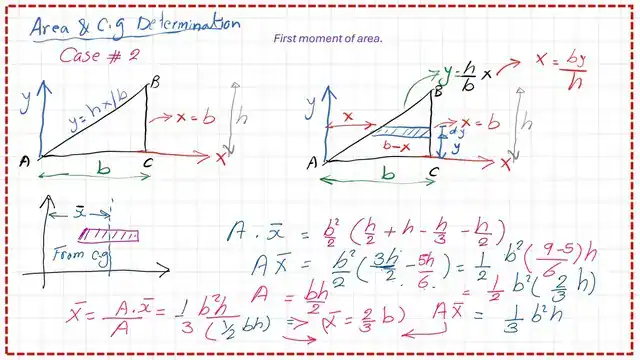 Area & C.g Determination
First moment of area.
Case # 2
y = h/b x
x = by/h
B
y
y = hx/b
x = b
h
A
b
C
x
B
y
x
x = b
h
dy
b-x
y
A
b
C
x
x̄
From c.g
A . x̄ = b²/2 (h/2 + h - h/3 - h/2)
A x̄ = b²/2 (3h/2 - 5h/6) = 1/2 b² (9-5)/6 h
A = bh/2
= 1/2 b² (2/3 h)
x̄ = A.x̄/A = 1/3 b²h/(1/2 bh) => (x̄ = 2/3 b)
A x̄ = 1/3 b²h